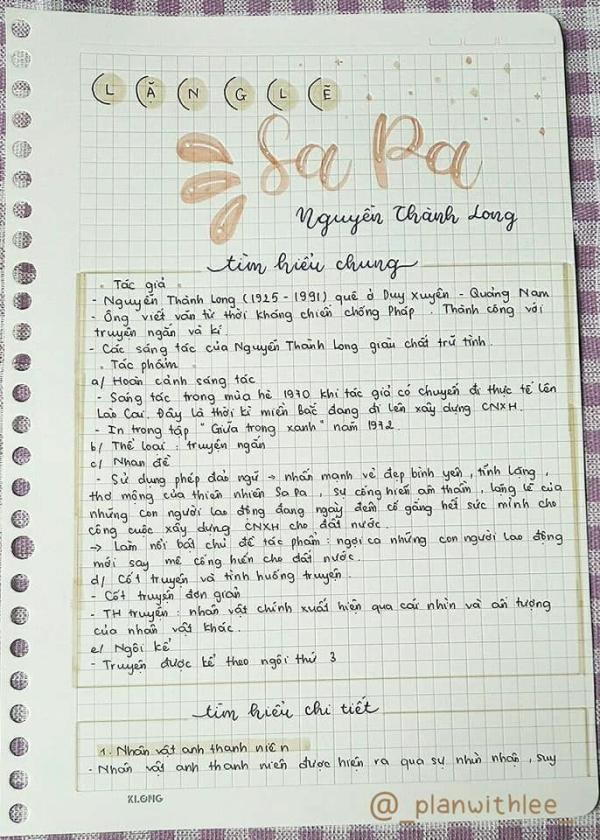 LẶNG LẼ
Sa Pa
Nguyễn Thành Long
tìm hiểu chung
Tác giả
- Nguyễn Thành Long (1925 - 1991) quê ở Duy Xuyên - Quảng Nam
- Ông viết văn từ thời kháng chiến chống Pháp. Thành công với
truyện ngắn và kí.
- Các sáng tác của Nguyễn Thành Long giàu chất trữ tình.
Tác phẩm
a/ Hoàn cảnh sáng tác
- Sáng tác trong mùa hè 1970 khi tác giả có chuyến đi thực tế lên
Lào Cai. Đây là thời kì miền Bắc đang đi lên xây dựng CNXH.
- In trong tập "Giữa trong xanh" năm 1972.
b/ Thể loại: truyện ngắn
c/ Nhan đề
- Sử dụng phép đảo ngữ → nhấn mạnh vẻ đẹp bình yên, tĩnh lặng,
thơ mộng của thiên nhiên Sa Pa, sự cống hiến âm thầm, lặng lẽ của
những con người lao động đang ngày đêm cố gắng hết sức mình cho
công cuộc xây dựng CNXH cho đất nước.
→ Làm nổi bật chủ đề tác phẩm: ngợi ca những con người lao động
mới say mê cống hiến cho đất nước.
d/ Cốt truyện và tình huống truyện.
- Cốt truyện đơn giản
- TH truyện: nhân vật chính xuất hiện qua cái nhìn và ấn tượng
của nhân vật khác.
e/ Ngôi kể
- Truyện được kể theo ngôi thứ 3
tìm hiểu chi tiết
1. Nhân vật anh thanh niên
- Nhân vật anh thanh niên được hiện ra qua sự nhìn nhận, suy
KLONG
@_planwithlee_